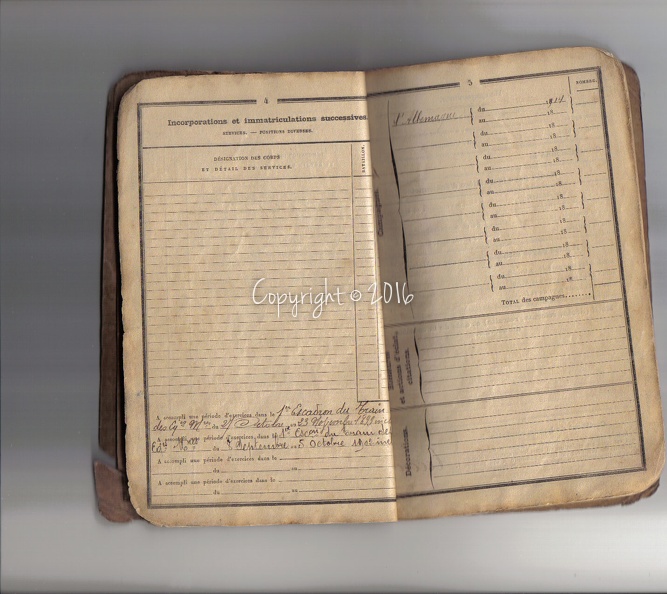 4
Incorporations et immatriculations successives
SERVICES. — POSITIONS DIVERSES.
DÉSIGNATION DES CORPS
ET DÉTAIL DES SERVICES.
A accompli une période d'exercices dans le 1er Escadron du Train
des Eq. du 27 Octobre au 23 Novembre
A accompli une période d'exercices dans le Escon du train des
du Septembre au 5 Octobre
A accompli une période d'exercices dans le
du au
A accompli une période d'exercices dans le
du au
5
NOMBRE
Campagnes
d'Allemagne
du 1914
au 18
du 18
au 18
du 18
au 18
du 18
au 18
du 18
au 18
du 18
au 18
du 18
au 18
du 18
au 18
TOTAL des campagnes
et actions d'éclat,
citations.
Décorations.
Copyright © 2016